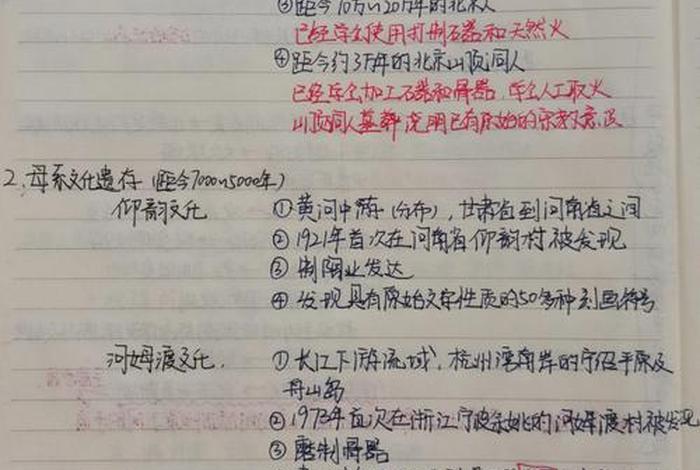 ③距今70万~20万年的北京人
已经学会使用打制石器和天然火
④距今约3万年的北京山顶洞人
已经学会加工石器和骨器,学会人工取火
山顶洞人墓葬说明已有原始的宗教意识
2.母系文化遗存(距今7000~5000年)
仰韵文化 ①黄河中游(分布),甘肃省到河南省之间
②1921年首次在河南省仰韵村被发现
③制陶业发达
④发现具有原始文字性质的50多种刻画符号
河姆渡文化. ①长江下游流域,杭州湾南岸的宁绍平原及
舟山岛
②1973年首次在浙江宁波余姚的河姆渡村被发现
③磨制骨器